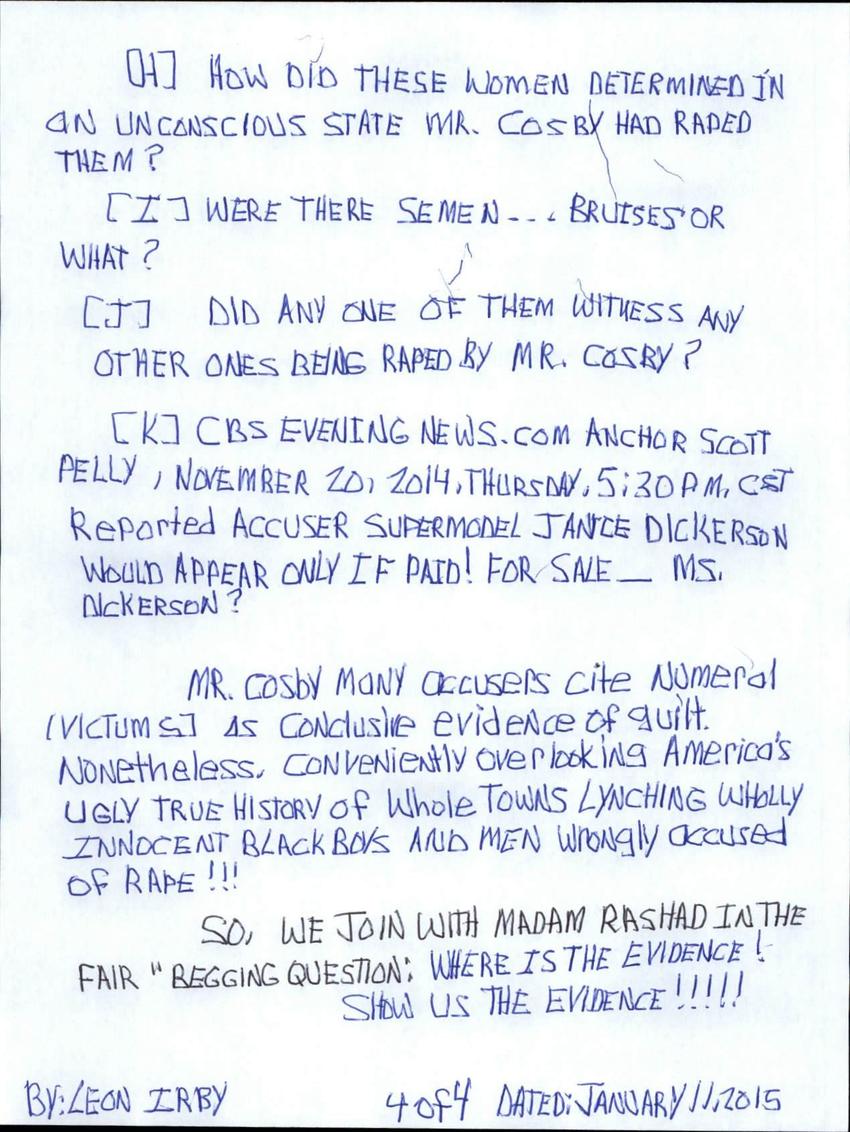 [H] HOW DID THESE WOMEN DETERMINED IN
AN UNCONSCIOUS STATE MR. COSBY HAD RAPED
THEM?
[I] WERE THERE SEMEN--.. BRUISES' OR
WHAT?
[J] DID ANY ONE OF THEM WITNESS ANY
OTHER ONES BEING RAPED BY MR. COSBY?
[K] CBS EVENING NEWS.COM ANCHOR SCOTT
PELLY, NOVEMBER 20, 2014, THURSDAY, 5:30 P.M, CST
Reported ACCUSER SUPERMODEL JANICE DICKERSON
WOULD APPEAR ONLY IF PAID! FOR SALE__ MS.
DICKERSON?
MR. COSBY MANY accusers cite Numeral
[VICTUMS] AS CONClusive evidence of guilt.
NONetheless, CONVENIENTLY overlooking America's
UGLY TRUE HISTORY of Whole TOWNS LYNCHING WHOLLY
INNOCENT BLACK BOYS AND MEN Wrongly accused
OF RAPE!!!
SO, WE JOIN WITH MADAM RASHAD IN THE
FAIR "BEGGING QUESTION: WHERE IS THE EVIDENCE!
SHOW US THE EVIDENCE!!!!!
BY: LEON IRBY 4 of 4 DATED: JANUARY 11, 2015